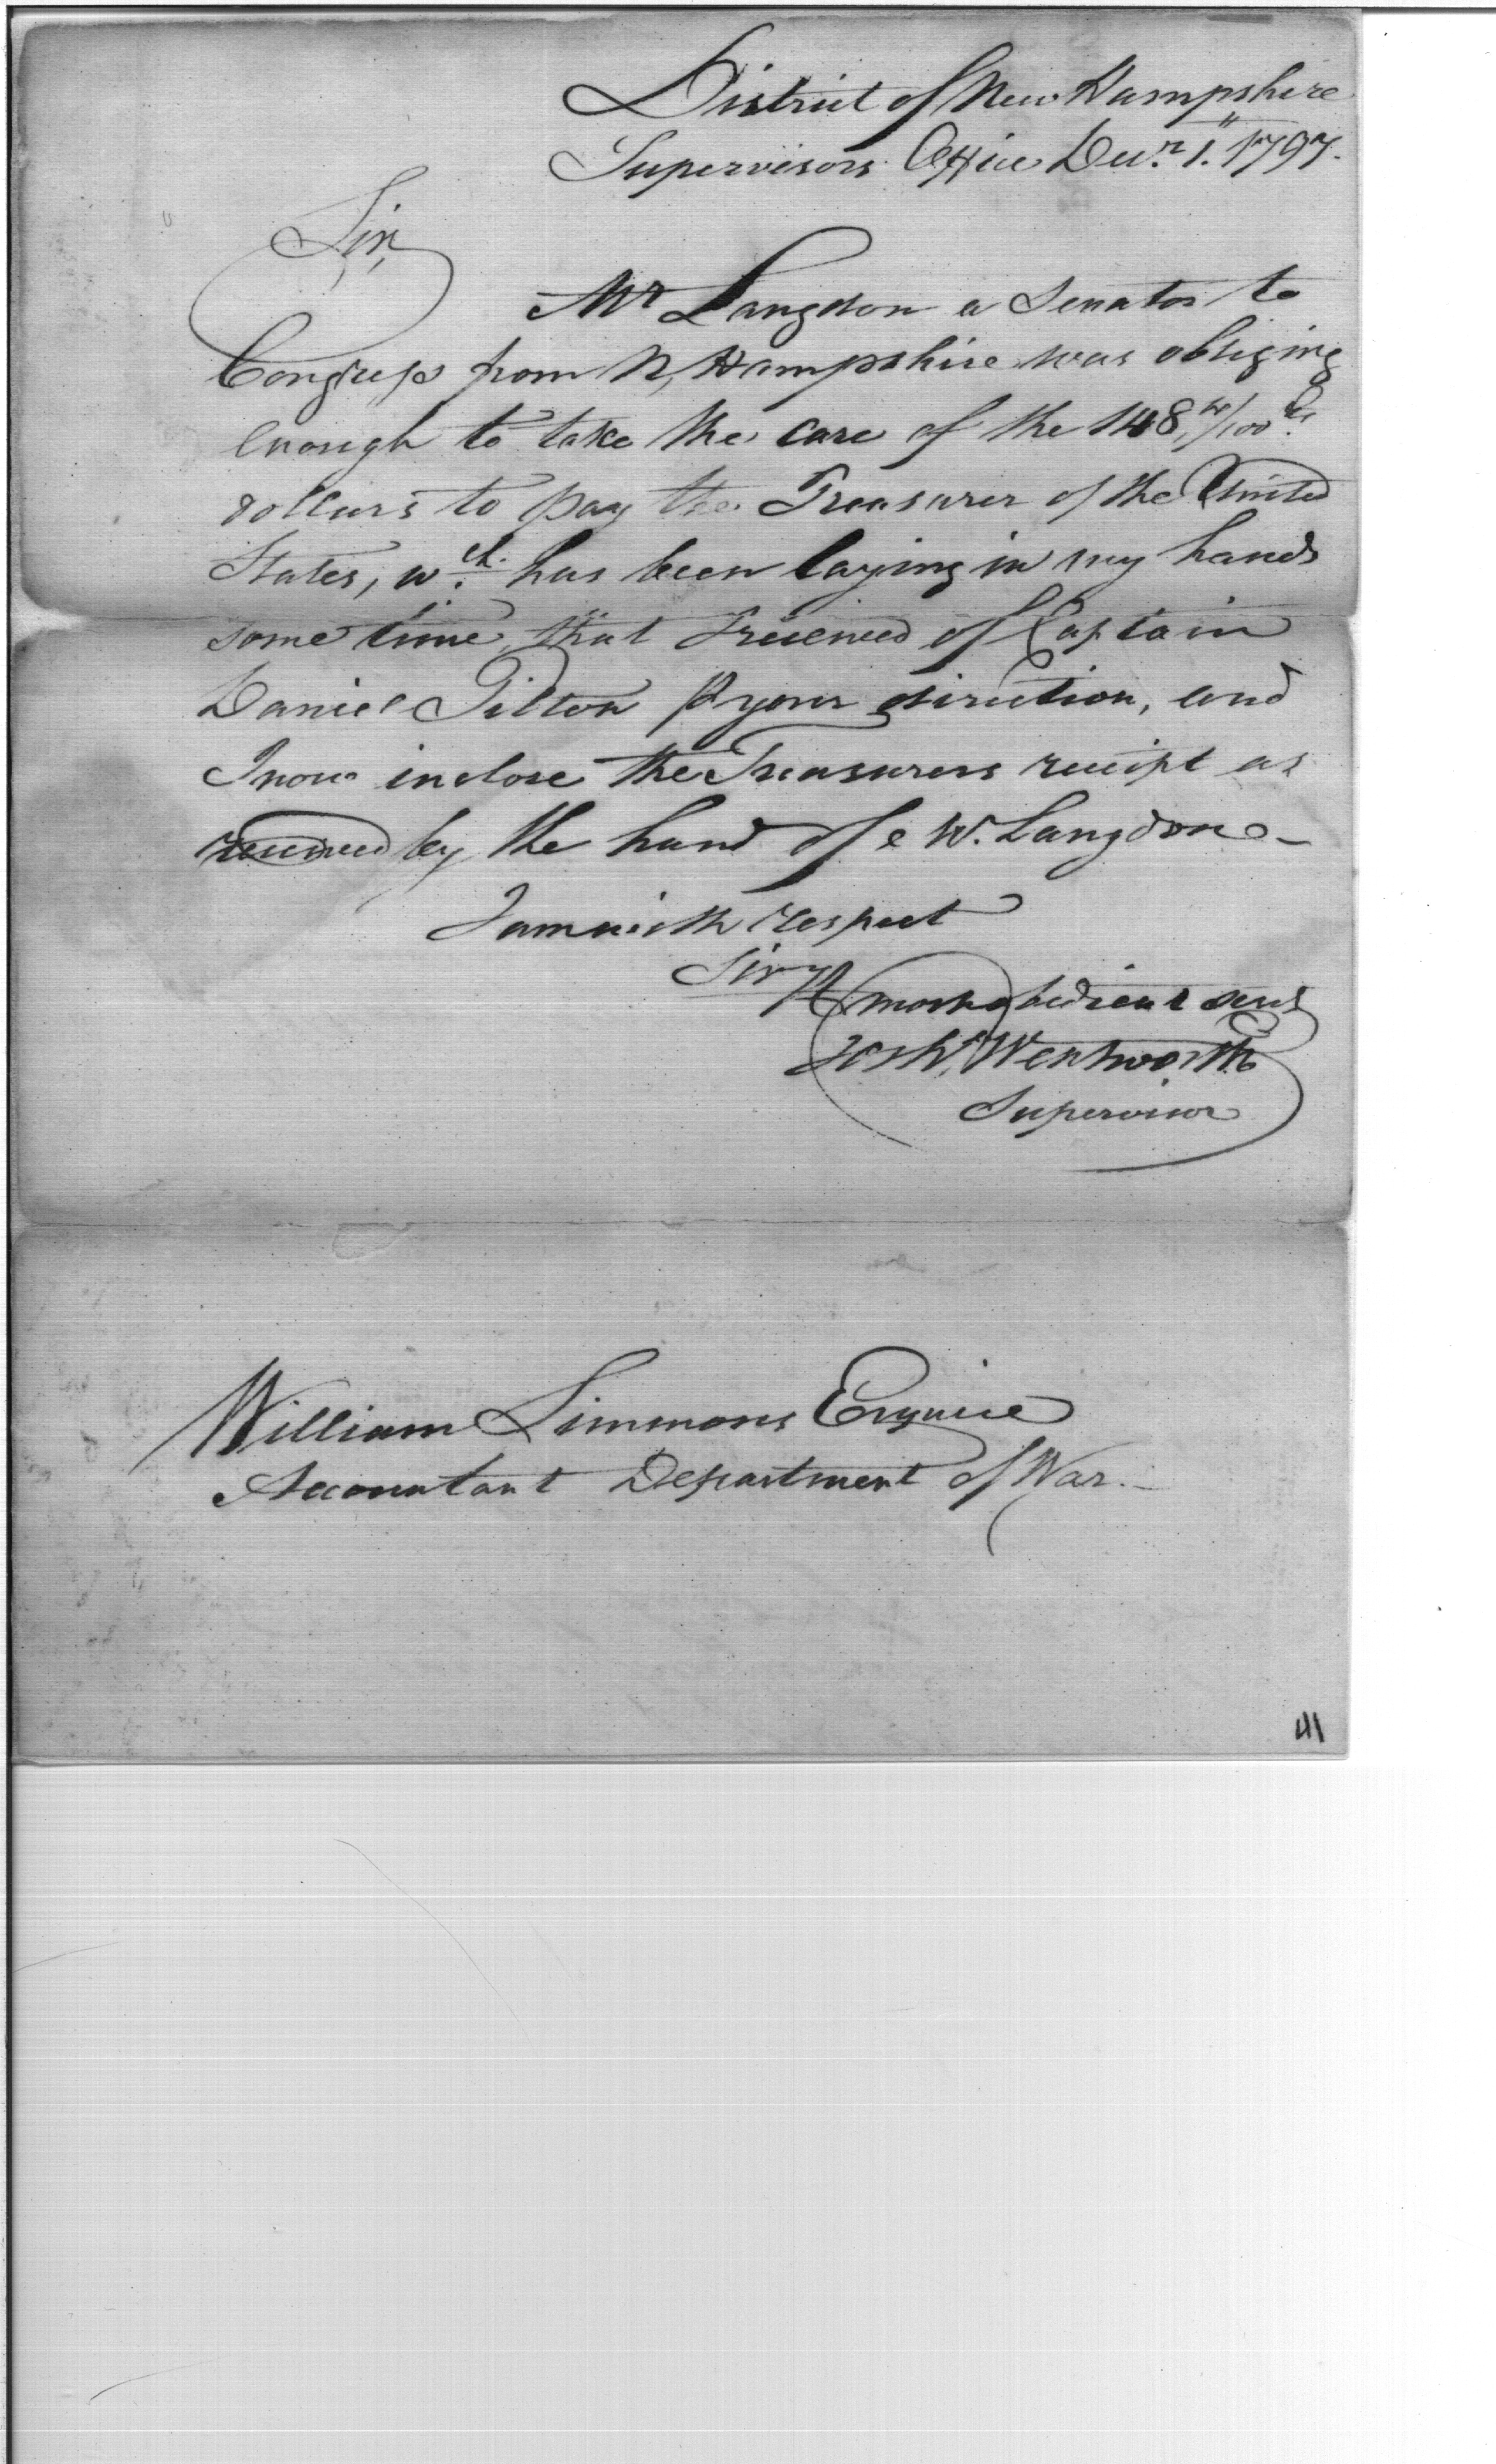 District of New Hampshire
Supervisors Office Decr. 1. 1797.
Sir,
Mr Langdon a Senator to
Congress from N, Hampshire was obliging
enough to take the care of the 148, /100ds.
dollars to pay the Treasurer of the United
States, wch. has been laying in my hands
some time, that I received of Captain
Daniel Tilton P your direction, and
I now inclose the Treasurers receipt as
received by the hand of W. Langdon –
I am with respect
Sir, yr
most obedient servt
Josh. Wentworth
Supervisor
William Simmons Esquire
Accountant Department of War. –
41